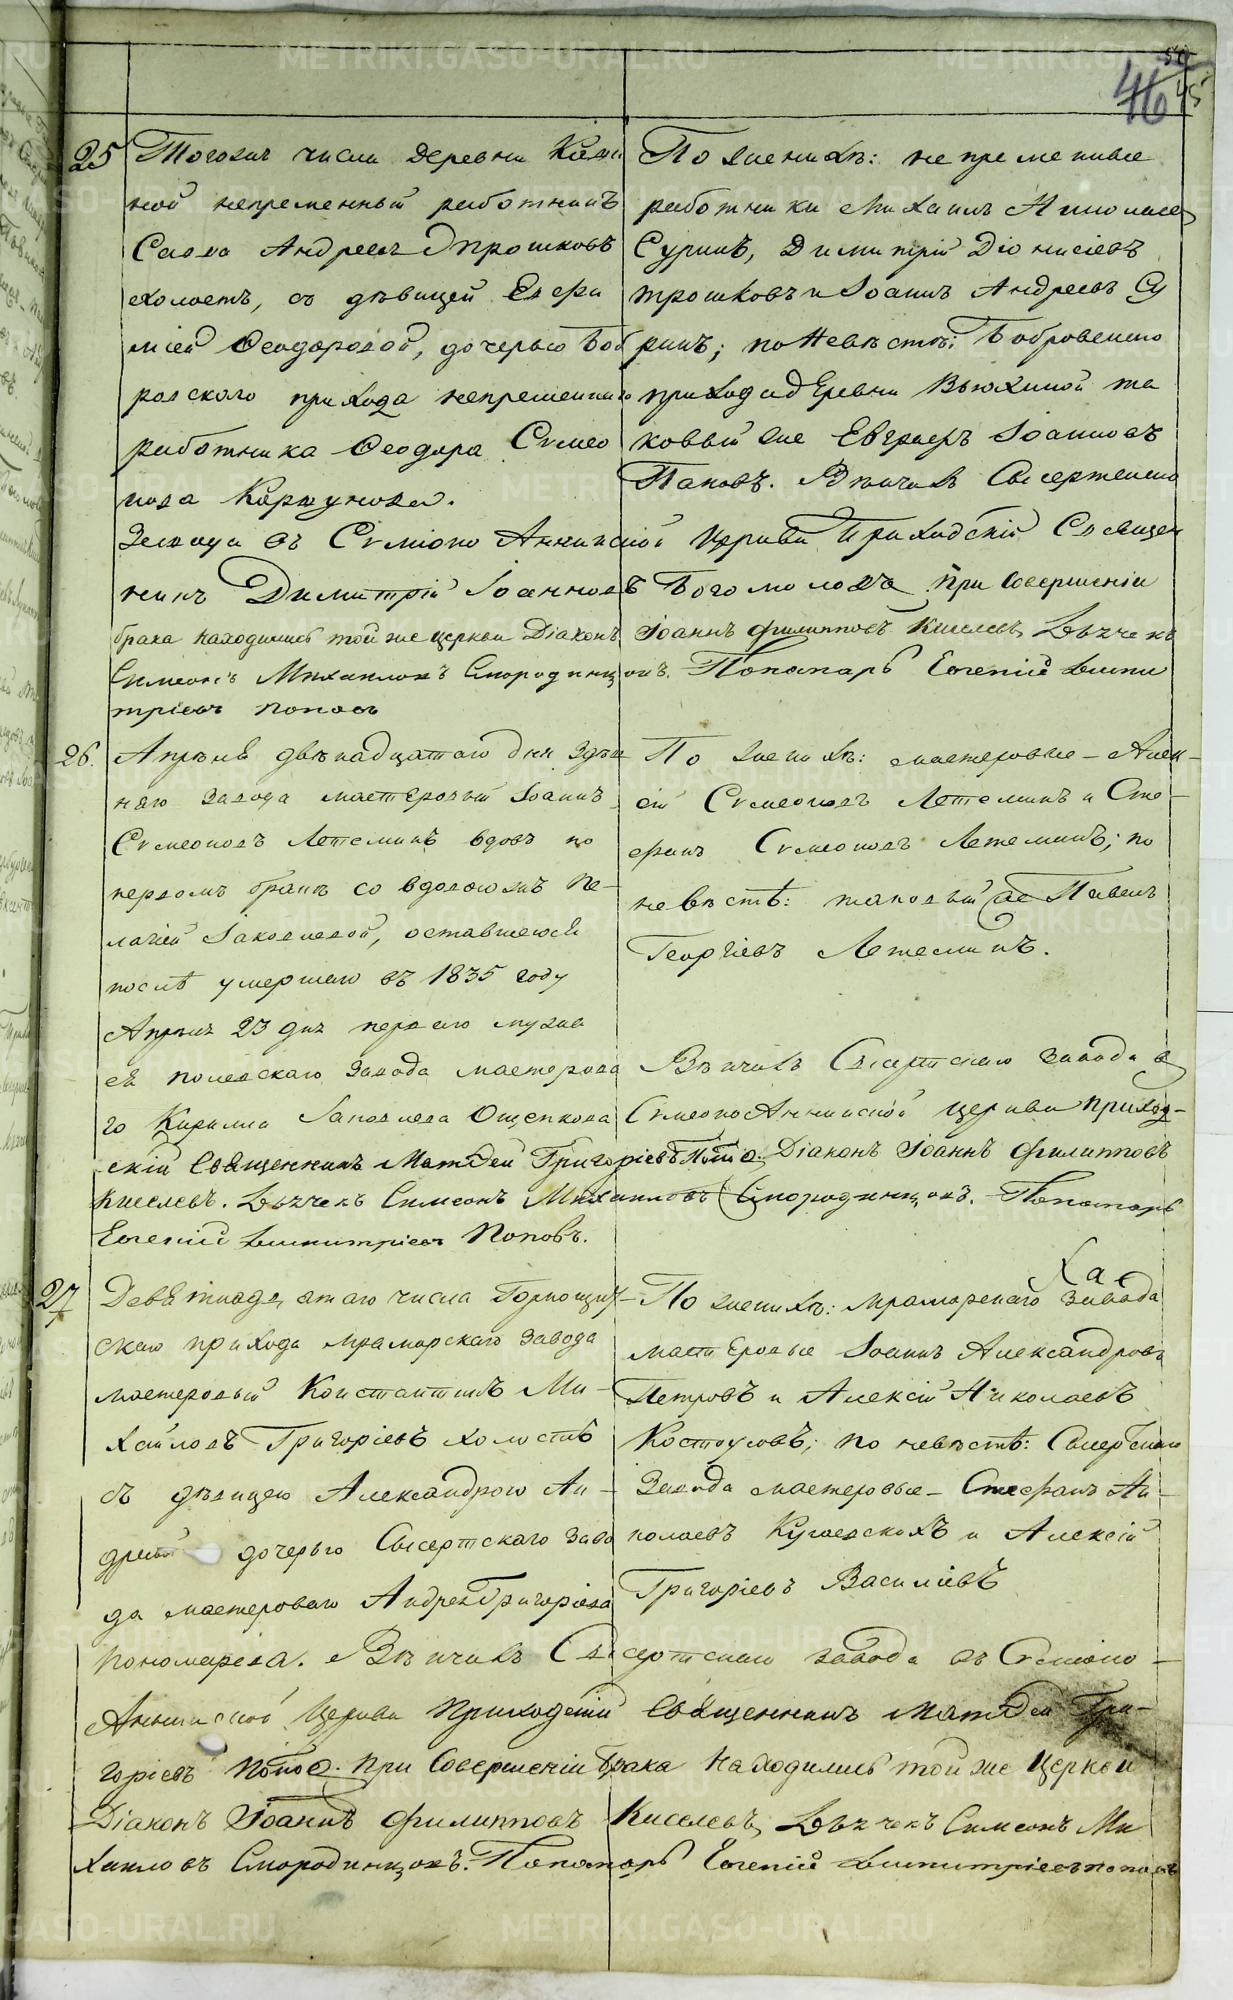 46
45
25
Тогожъ числа деревни
ной непременный работникъ
Савва Андреевъ Трошковъ
холостъ, съ дѣвицей Евфи
міей Ѳеодоровой, дочерью Боб
ровскаго прихода непременнаго
работника Ѳеодора Сѵмео
нова Коршунова.
По женихѣ: непременные
работники Михаилъ Николаевъ
Суринъ, Димитрій Діонисіевъ
Трошковъ и Іоаннъ Андреевъ Су
ринъ; по невѣстѣ: Бобровскаго
прихода деревни Вьюхиной та
ковый же Евграфъ Іоанновъ
Пановъ. Вѣнчалъ Сысертскаго
Завода въ Сѵміоно Аннинской Церкви Приходскій Священ
никъ Димитрій Іоанновъ Богомоловъ. При совершеніи
брака находились той же церкви Діаконъ Іоаннъ Филипповъ Киселевъ, Дьячекъ
Симеонъ Михаиловъ Смородинцовъ. Пономарь Евгеній Димит
тріевъ Поповъ
26.
Апрѣля двѣнадцатаго дня Здѣш
няго завода мастеровый Іоаннъ
Сѵмеоновъ Летеминъ вдовъ по
первомъ бракѣ со вдовою Пе-
лагіей Іаковлевой, оставшеюся
послѣ умершаго въ 1835 году
Апрѣля 23 дня перваго мужа
ея Полевскаго завода мастерова
го Кирилла Іаковлева Ощепкова
По женихѣ: мастеровые - Алек-
сій Сѵмеоновъ Летеминъ и Сте-
фанъ Сѵмеоновъ Летеминъ; по
невѣстѣ: таковый же Павелъ
Георгіевъ Летеминъ.
Вѣнчалъ Сысертскаго завода въ
Симеоно Аннинской церкви Приход-
скій Священникъ Матѳей Григоріевъ Поповъ. Діаконъ Іоаннъ Филипповъ
Киселевъ. Дьячекъ Симеонъ Михаиловъ Смородинцовъ. Пономарь
Евгеній Димитріевъ Поповъ.
27
Девятнадцатаго числа Горнощит-
скаго прихода Мраморскаго завода
мастеровый Константинъ Ми-
хайловъ Григоріевъ холостъ
съ дѣвицею Александрою Ан-
дреевой дочерью Сысертскаго заво
да мастероваго Андрея Григоріева
Пономарева.
По женихѣ: Мраморскаго завода
мастеровые Іоаннъ Александровъ
Петровъ и Алексій Николаевъ
Костоусовъ; по невѣстѣ: Сысертскаго
Завода мастеровые - Стефанъ Ни-
колаевъ и Алексій
Григоріевъ Василіевъ
Вѣнчалъ Сысертскаго завода въ Сѵміоно-
Аннинской Церкви Приходскій Священникъ Матѳей Гри-
горіевъ Поповъ. При совершеніи брака находились той же Церкви
Діаконъ Іоаннъ Филипповъ Киселевъ, Дьячекъ Симеонъ Ми
хаиловъ Смородинцовъ. Пономарь Евгеній Димитріевъ Поповъ